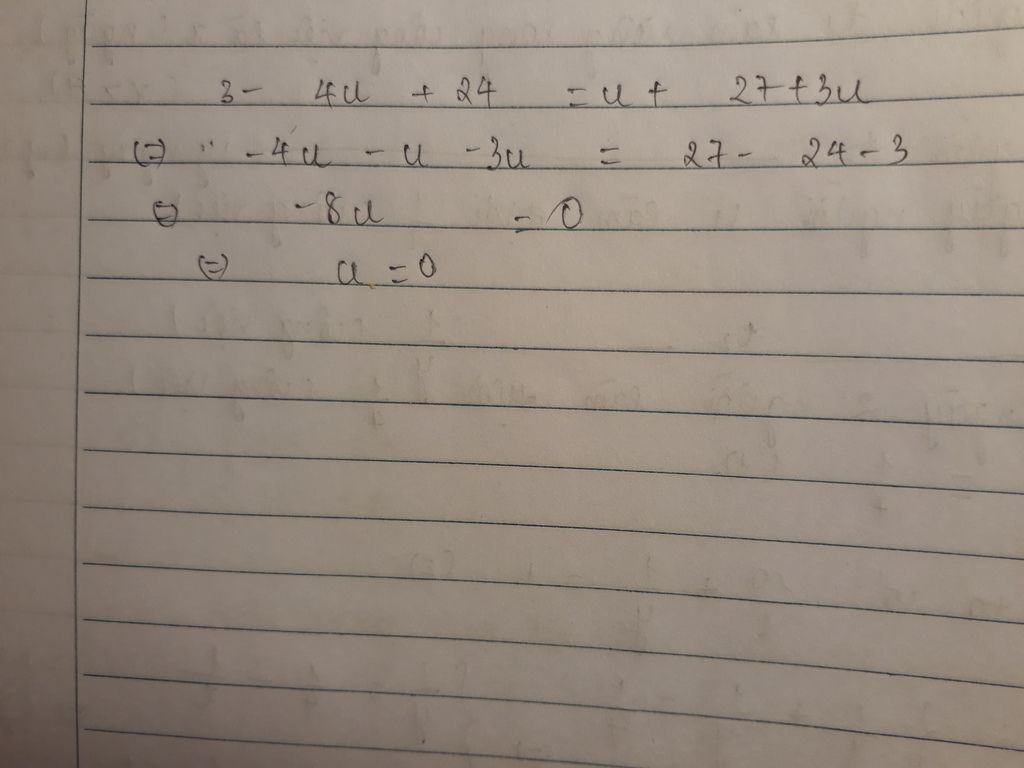 3 - 4u + 24 = u + 27 + 3u
(=) -4u - u - 3u = 27 - 24 - 3
(=) -8u = 0
(=) u = 0